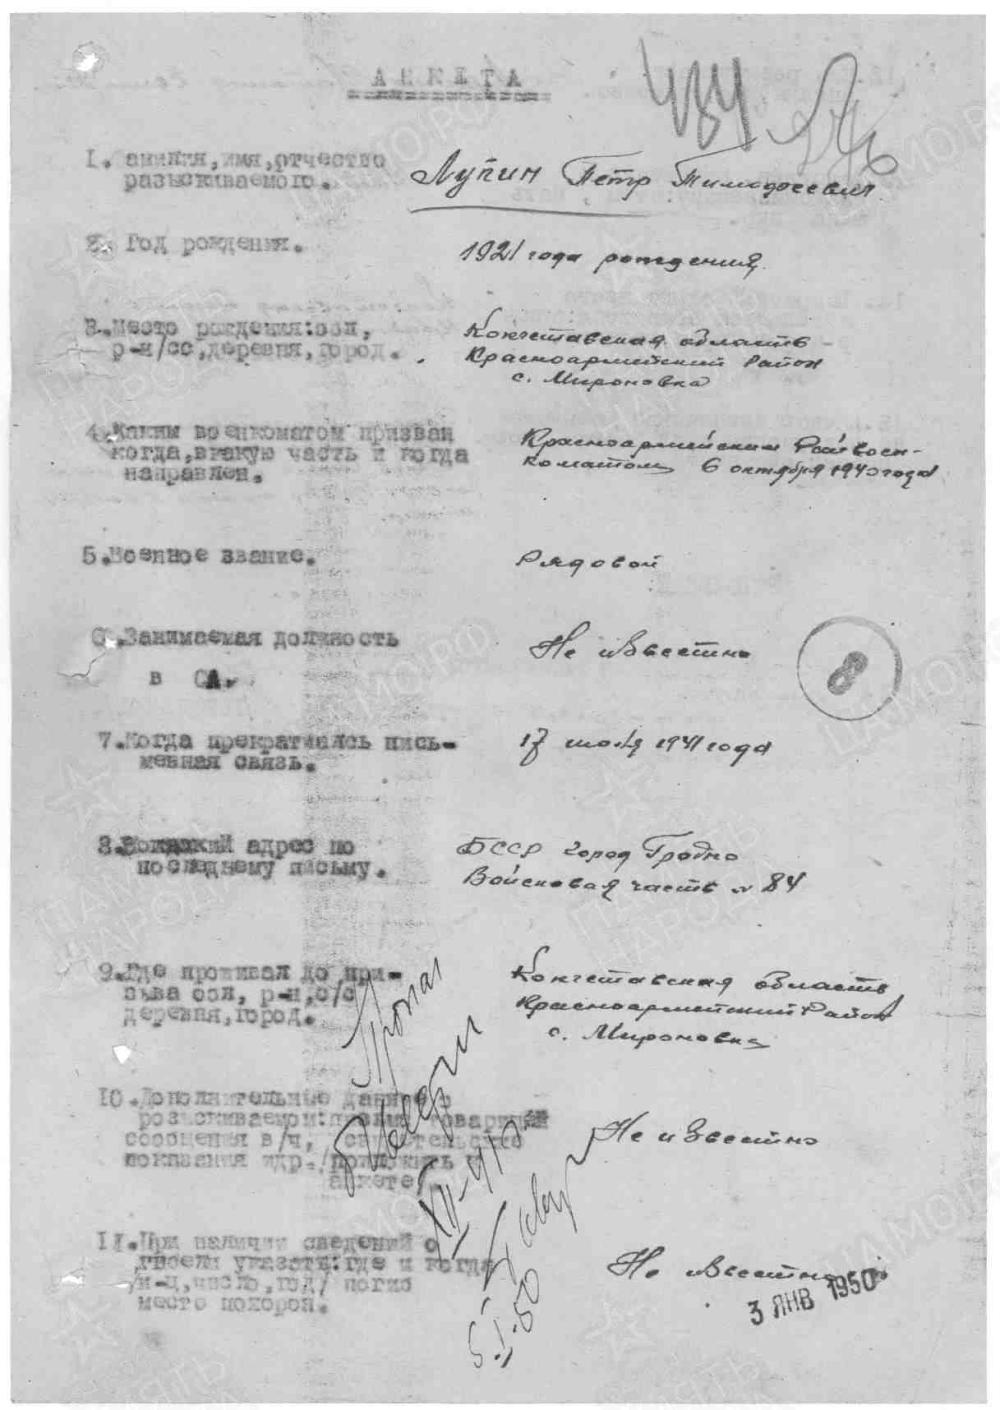 АНКЕТА
484
1. амилия, имя, отчество Лупин Петр Тимофеевич
разыскиваемого.
2. Год рождения. 1921 года рождения
3. Место рождения: обл, Кокчетавская область
р-н/сс, деревня, город. Красноармейский Район
с. Мироновка
4. Каким военкоматом призван Красноармейским Райвоен-
когда, в какую часть и когда коматом 6 октября 1940 года
направлен.
5. Военное звание. Рядовой
6. Занимаемая должность Не известно
в СА.
8
7. Когда прекратилась пись- 17 1941 года
менная связь.
8. адрес по БССР город Гродно
последнему письму. Войсковая часть № 84
9. Где проживал до при- Кокчетавская область
зыва обл, р-н, с/с Красноармейский Район
деревня, город. с. Мироновка
Пропал
без вести
XII-41г
10. Дополнительные данные о
розыскиваемом: письма товарищей Не известно
сообщения в/ч, свидетельские
показания идр./приложить к
анкете/.
11. При наличии сведений о
гибели указать: где и когда Не известно
/м-ц, число, год/ погиб
место похорон.
3 ЯНВ 1950
5.I.50